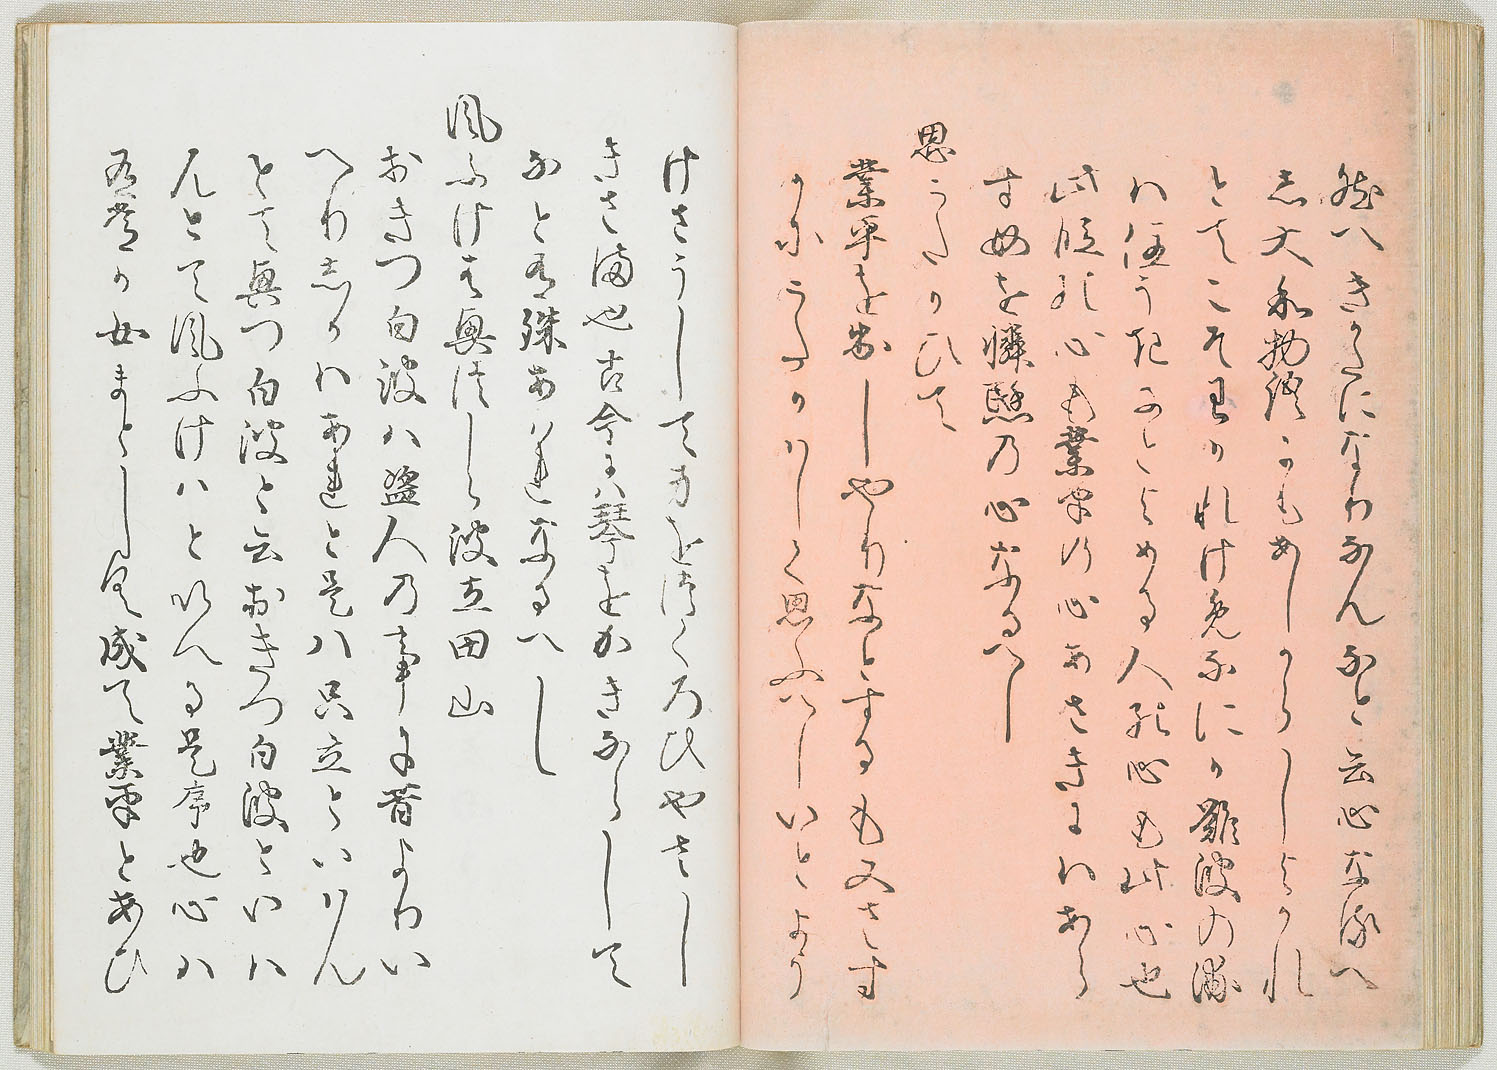 然へきかたになりなんなと云心なるへ
し大和物語にもあしからしよかれ
とてこそわかれけめなにか難波の浦
は住うきなとよめる人の心も此心也
此段の心も業平の心あさきにはあら
す女を憐愍の心なるへし
思うたかひて
業平を出しやりなとするも又さす
かにうたかはしく思ふへしいとよう
けさうして身をつくろひやさし
きさま也古今には琴をかきならして
なと有殊あはれなるへし
風ふけは興津しら波立田山
おきつ白波は盗人の事に昔よりい
へりしかはあれと是は只立といはん
とて興つ白波と云おきつ白波といは
んとて風ふけはといへる是序也心は
有常か女まとし見成て業平とあひ